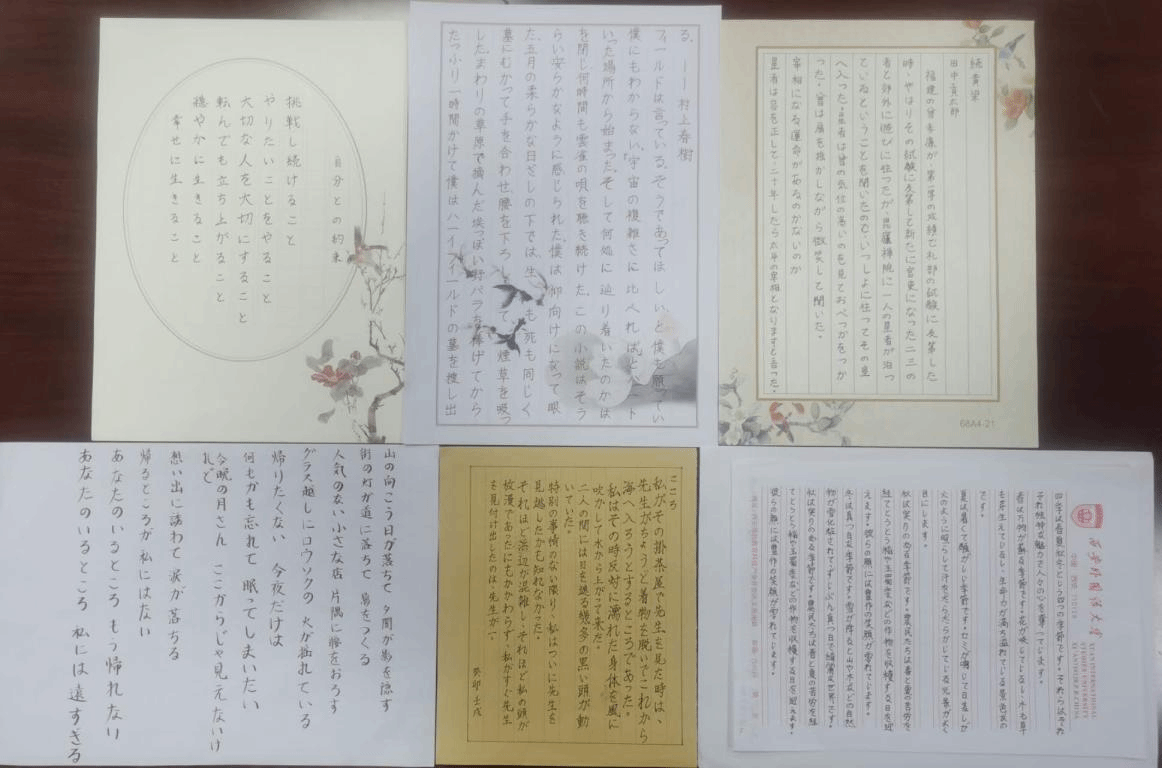 自分との約束
挑戦し続けること
やりたいことをやること
大切な人を大切にすること
転んでも立ち上がること
穏やかに生きること
幸せに生きること
る。——村上春樹
フィールドは言っている。そうであってほしい、と僕も願ってい
僕にもわからない。「宇宙の複雑さに比べれば」とハート
いった場所から始まった。そして何処に辿り着いたのかは
を閉じ何時間も雲雀の唄を聴き続けた。この小説はそう
らい安らかなように感じられた。僕は仰向けになって眼
た。五月の柔らかな日ざしの下では、生も死も同じく
墓にむかって手を合わせ、腰を下ろして煙草を吸っ
した。まわりの草原で摘んだ埃っぽい野バラを捧げてから
たっぷり一時間かけて僕はハートフィールドの墓を捜し出
続黄梁
田中貢太郎
福建の曾孝廉が、第一等の成績で礼部の試験に及第した
時、やはりその試験に及第して新たに官吏になった二三の
者と郊外に遊びに往ったが、毘廬禅院に一人の星者が泊っ
ているということを聞いたので、いっしょに往ってその室
へ入った。星者は曾の気位の高いのを見ておべっかをつか
った。曾は扇を揺かしながら微笑して聞いた。
宰相になる運命があるのかないのか
星者は容を正して、二十年したら太平の宰相となりますと言った。
山の向こう日が落ちて 夕闇が影を隠す
街の灯が道に落ちて 島をつくる
人気のない小さな店 片隅に腰をおろす
グラス越しにロウソクの 火が揺れている
帰りたくない 今夜だけは
何もかも忘れて 眠ってしまいたい
今晩の月さん ここからじゃ見えないけ
れど
想い出に誘われて 涙が落ちる
帰るところが私にはない
あなたのいるところ もう帰れない
あなたのいるところ 私には遠すぎる
こころ
私がその掛茶屋で先生を見た時は、
先生がちょうど着物を脱いでこれから
海へ入ろうとするところであった。
私はその時反対に濡れた身体を風に
吹かして水から上がって来た。
二人の間には目を遮る幾多の黒い頭が動
いていた。
特別の事情のない限り、私はついに先生を
見逃したかも知れなかった。
それほど浜辺が混雑し、それほど私の頭が
放漫であったにもかかわらず、私がすぐ先生
を見付け出したのは、先生が一
癸卯壬戌
西安外国语大学
XI'AN INTERNATIONAL
STUDIES UNIVERSITY
XI'AN SHAANXI P.R.CHINA
四季は春夏秋冬という四つの季節です。それらはそれ
ぞれ独特な魅力で人々の心を奪っています。
です。
日にします。
えます。彼らの顔には豊作の笑顔が雰れています。
彼らの顔には豊作の笑顔が雰れています。
68A4-21